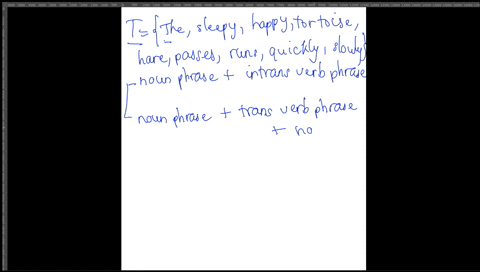 T = {The, sleepy, happy, tortoise,
hare, passes, runs, quickly, slowly}
noun phrase + intrans verb phrase
noun phrase + trans verb phrase
+ no